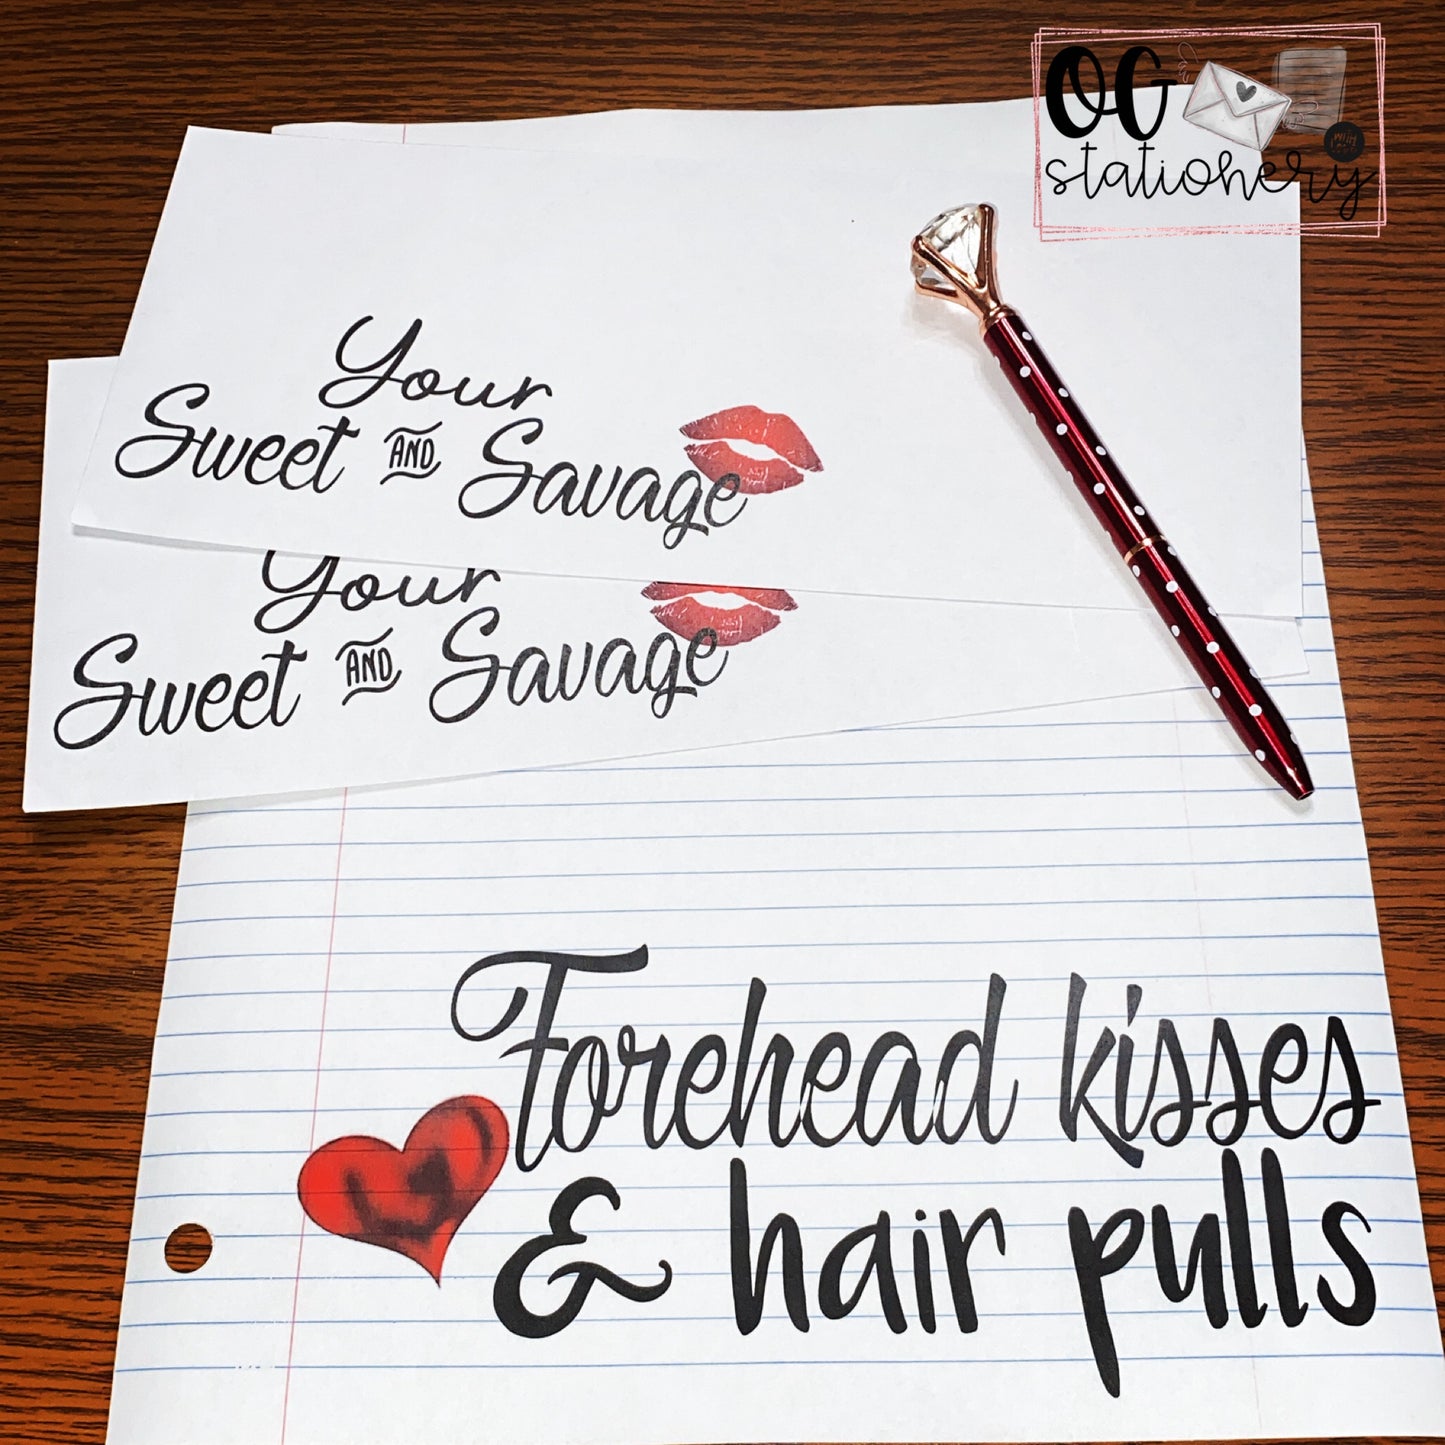 OG
stationery
Your
Sweet AND Savage
Your
Sweet AND Savage
Forehead kisses
& hair pulls